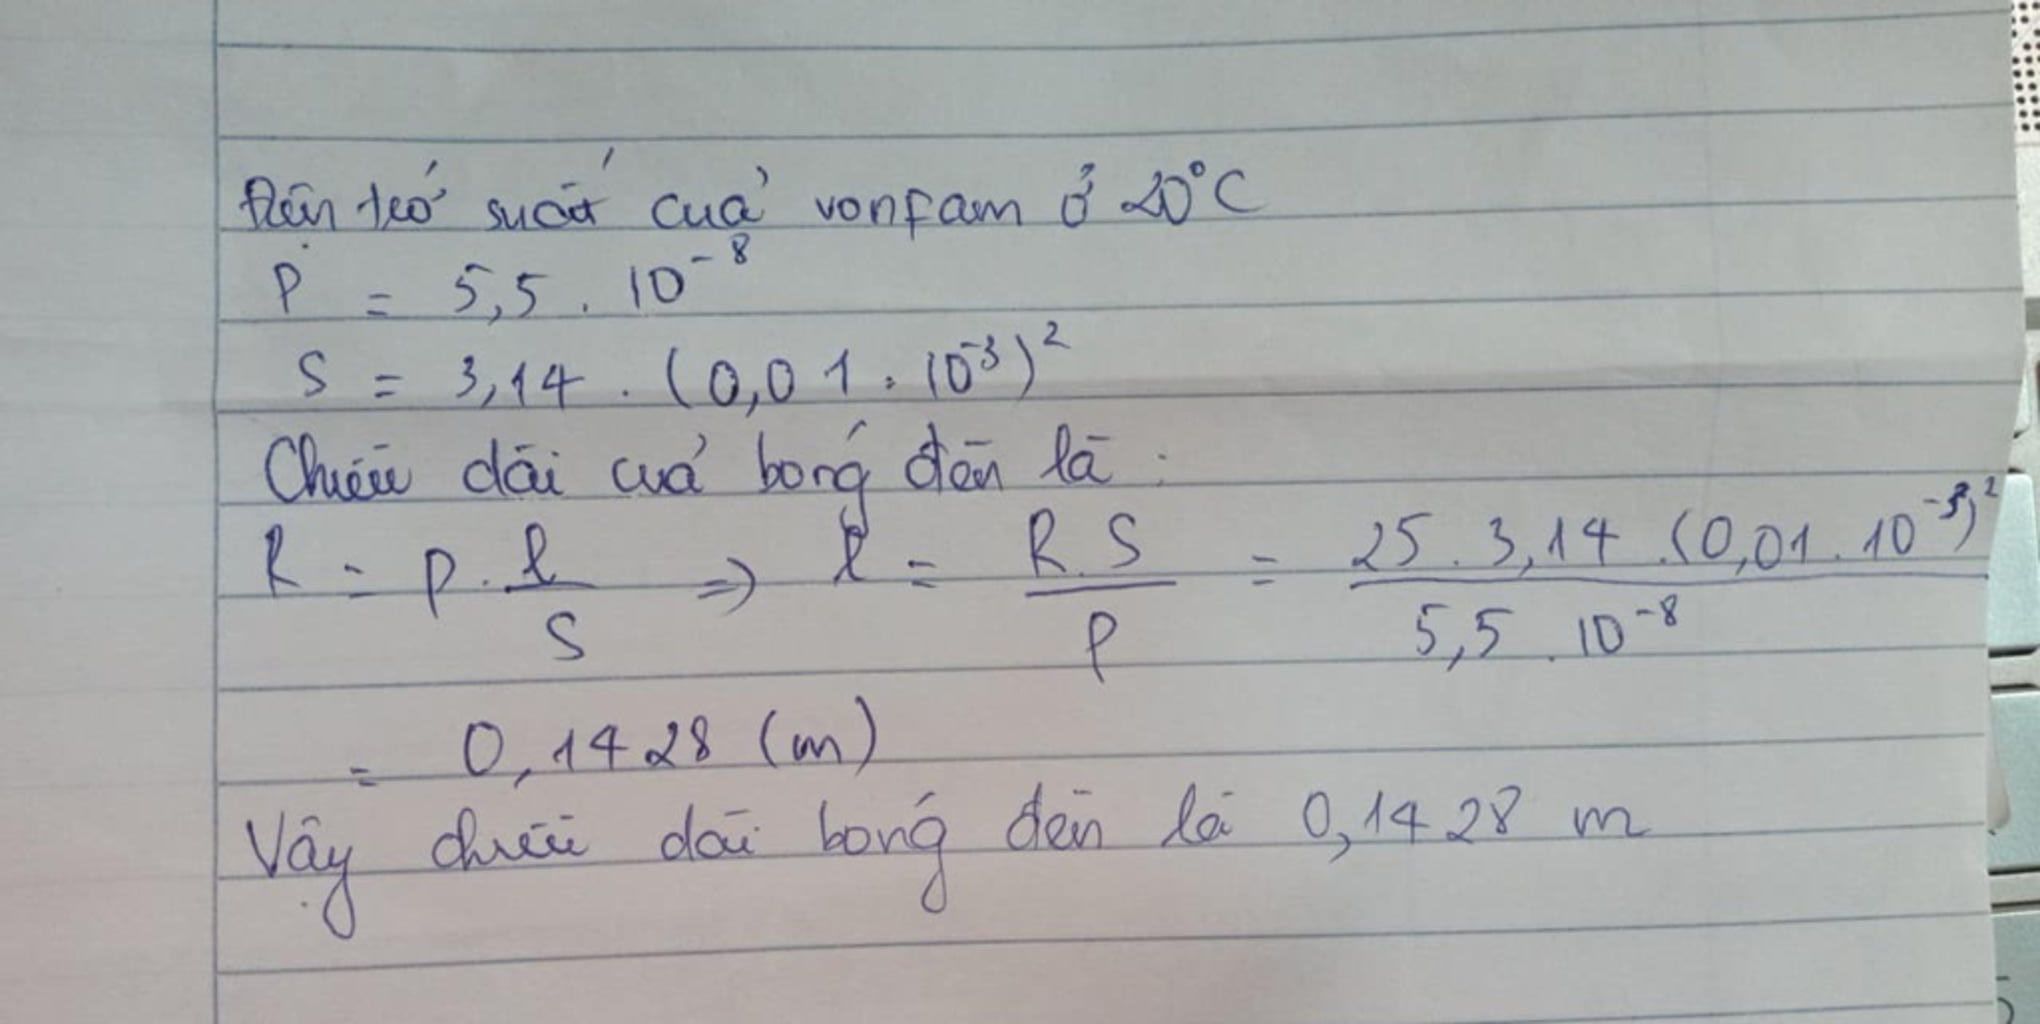 Điện trở suất của vonfam ở 20°C
ρ = 5,5 . 10⁻⁸
S = 3,14 . (0,01 . 10⁻³)²
Chiều dài của bóng đèn là :
R = ρ . l/S => l = R.S/ρ = 25 . 3,14 . (0,01 . 10⁻³)²/5,5 . 10⁻⁸
= 0,1428 (m)
Vậy chiều dài bóng đèn là 0,1428 m